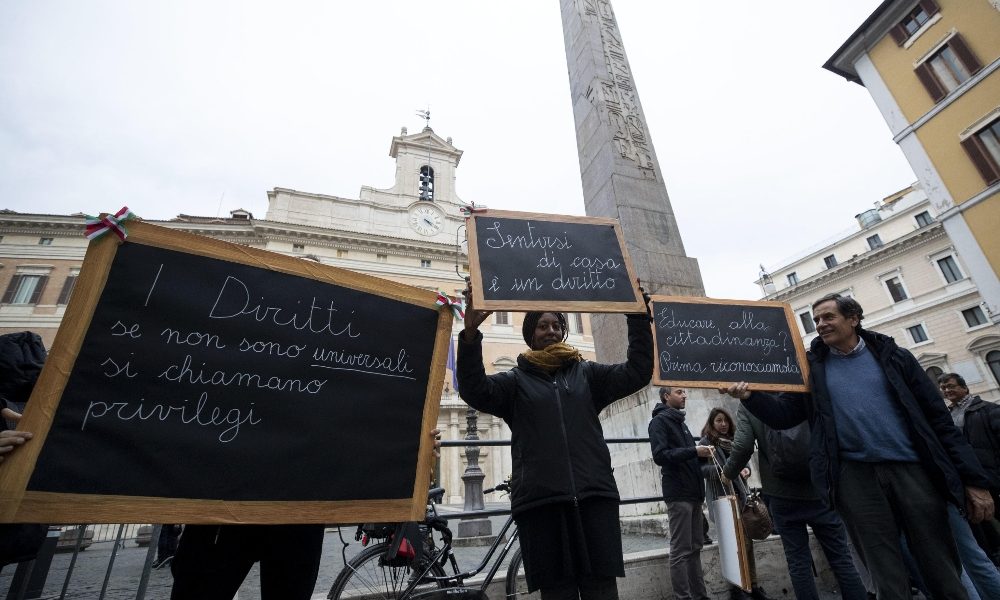 I Diritti
se non sono universali
si chiamano
privilegi
Sentirsi
di casa
è un diritto
Educare alla
cittadinanza?
Prima riconosciamola